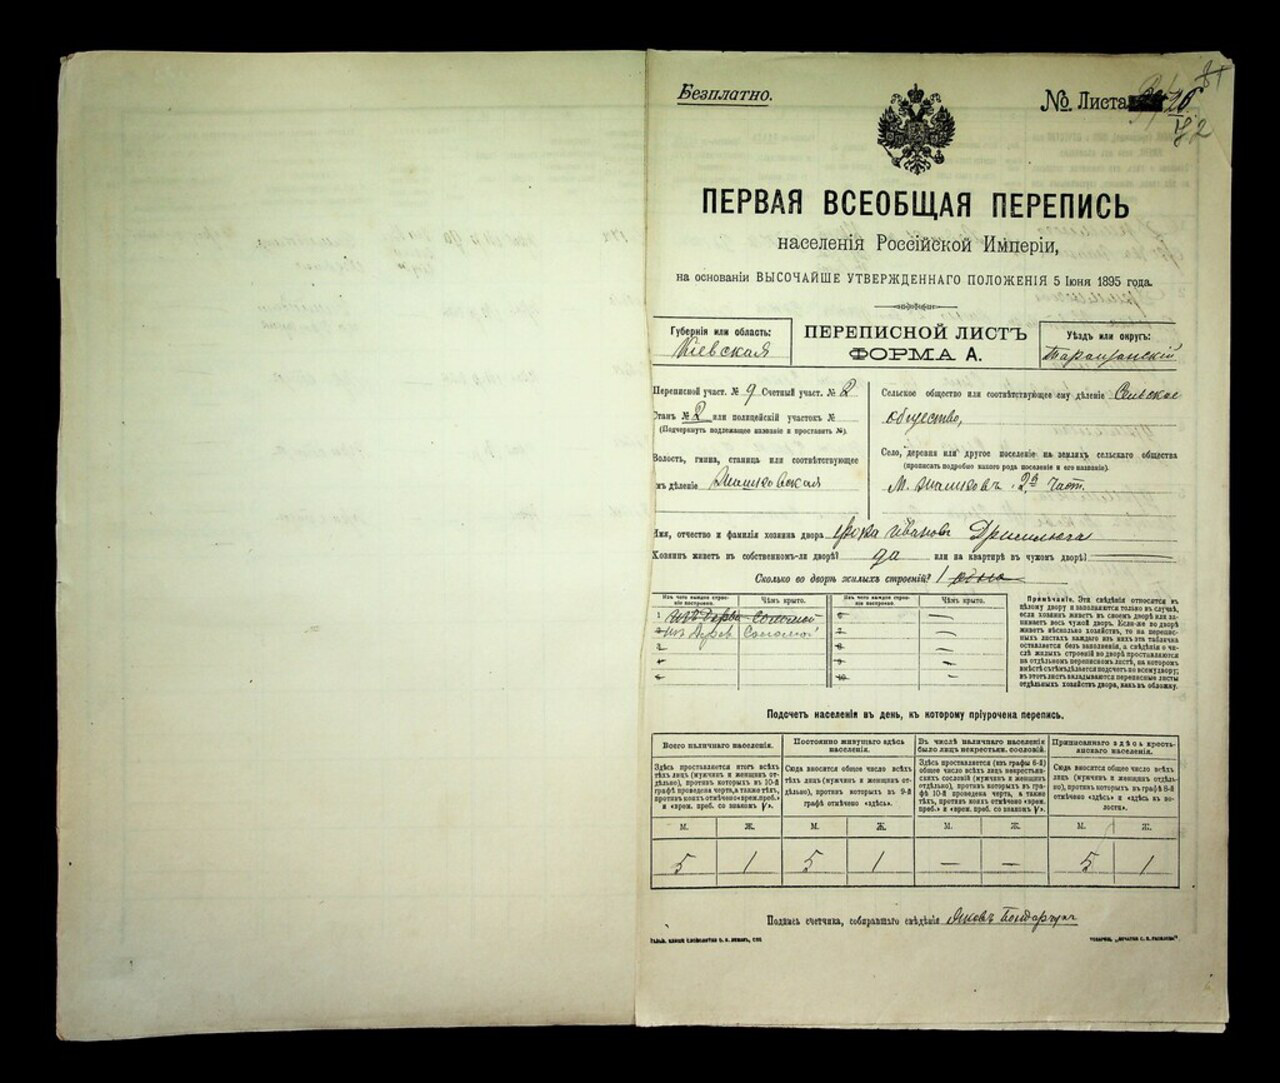 Безплатно.
№. Листа
ПЕРВАЯ ВСЕОБЩАЯ ПЕРЕПИСЬ
населенія Россійской Имперіи,
на основаніи ВЫСОЧАЙШЕ УТВЕРЖДЕННАГО ПОЛОЖЕНІЯ 5 Іюня 1895 года.
Губернія или область:
Кіевская
ПЕРЕПИСНОЙ ЛИСТЪ
ФОРМА А.
Уѣздъ или округъ:
Таращанскій
Переписной участ. № 9 Счетный участ. № 2
Станъ № 2 или полицейскій участокъ №
(Подчеркнуть подлежащее названіе и проставить №).
Волость, гмина, станица или соотвѣтствующее
имъ дѣленіе
Сельское общество или соотвѣтствующее ему дѣленіе Сельское
общество,
Село, деревня или другое поселеніе на земляхъ сельскаго общества
(прописать подробно какого рода поселеніе и его названіе).
М. 2я част.
Имя, отчество и фамилія хозяина двора Ивановъ
Хозяинъ живетъ въ собственномъ-ли дворѣ? да или на квартирѣ въ чужомъ дворѣ?
Сколько во дворѣ жилыхъ строеній? 1 одно
Изъ чего каждое строеніе построено.
Чѣмъ крыто.
Изъ чего каждое строеніе построено.
Чѣмъ крыто.
1 изъ дерева соломой 6
2 изъ Дерев Соломой 7
3 8
4 9
5 10
Примѣчаніе. Эти свѣдѣнія относятся къ
цѣлому двору и заполняются только въ случаѣ,
если хозяинъ живетъ въ своемъ дворѣ или занимаетъ
весь чужой дворъ. Если-же во дворѣ
живетъ нѣсколько хозяйствъ, то на переписныхъ
листахъ каждаго изъ нихъ эта табличка
оставляется безъ заполненія, а свѣдѣнія о числѣ
жилыхъ строеній во дворѣ проставляются
на отдѣльномъ переписномъ листѣ, на которомъ
вмѣстѣ съ тѣмъ дѣлается подсчетъ по всему двору;
въ этотъ листъ вкладываются переписные листы
отдѣльныхъ хозяйствъ двора, какъ въ обложку.
Подсчетъ населенія въ день, къ которому пріурочена перепись.
Всего наличнаго населенія.
Здѣсь проставляется итогъ всѣхъ
тѣхъ лицъ (мужчинъ и женщинъ отдѣльно),
противъ которыхъ въ 10-й
графѣ проведена черта, а также тѣхъ,
противъ коихъ отмѣчено «врем. преб.»
и «врем. преб. со знакомъ V».
Постоянно живущаго здѣсь
населенія.
Сюда вносится общее число всѣхъ
тѣхъ лицъ (мужчинъ и женщинъ отдѣльно),
противъ которыхъ въ 9-й
графѣ отмѣчено «здѣсь».
Въ числѣ наличнаго населенія
было лицъ некрестьян. сословій.
Здѣсь проставляется (изъ графы 6-й)
общее число всѣхъ лицъ некрестьянскихъ
сословій (мужчинъ и женщинъ
отдѣльно), противъ которыхъ въ графѣ
10-й проведена черта, а также
тѣхъ, противъ коихъ отмѣчено «врем.
преб.» и «врем. преб. со знакомъ V».
Приписаннаго здѣсь крестьянскаго
населенія.
Сюда вносится общее число всѣхъ
лицъ (мужчинъ и женщинъ отдѣльно),
противъ которыхъ въ графѣ 8-й
отмѣчено «здѣсь» и «здѣсь въ волости».
М. Ж. М. Ж. М. Ж. М. Ж.
5 1 5 1 — — 5 1
Подпись счетчика, собиравшаго свѣдѣнія Яковъ Бондарчук